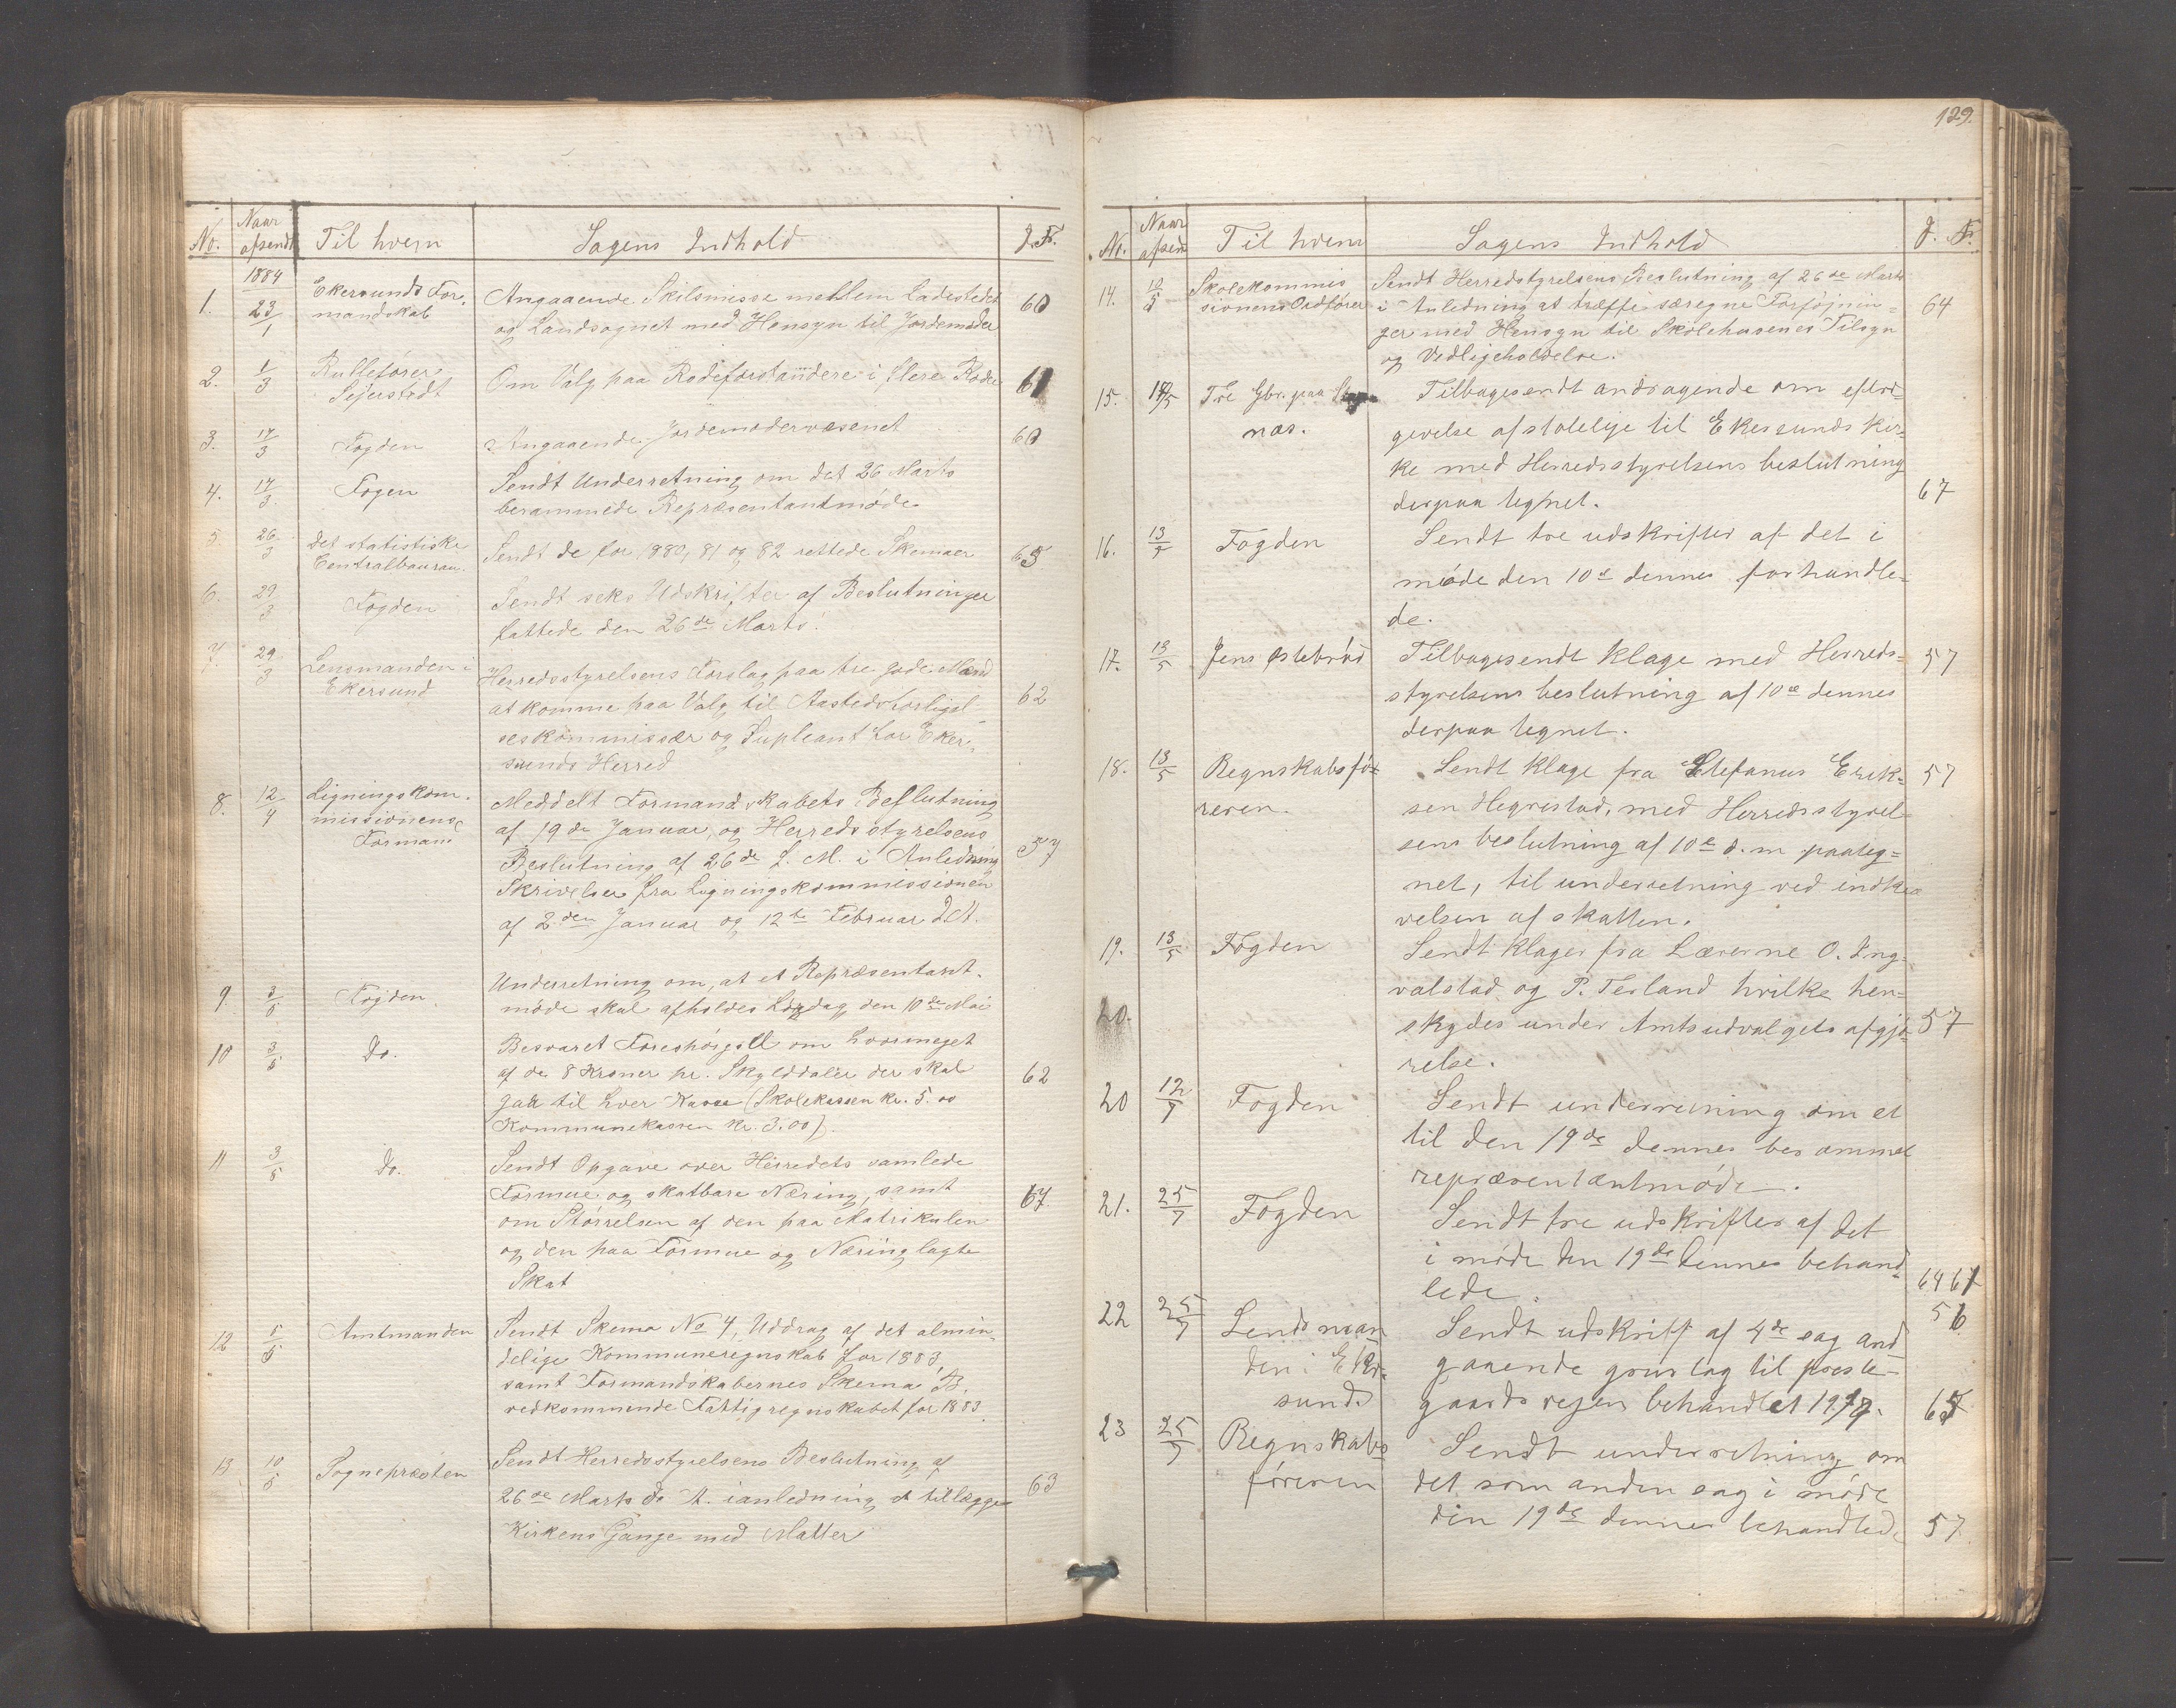 No. Naar afsendt Til hvem Sagens Indhold J. F.
1884
1. 23/1 Ekersunds For- Angaaende Skilsmisse mellem Ladestedet 60
mandskab og Landsognet med Hensyn til Jordemoder
2. 1/3 Rulleforer Om Valg paa Rodeforstanndere i flere Roder 61
Sejerstedt
3. 17/3 Fogden Angaaende Jordemodervæsenet 60
4. 17/3 Fogen Sendt Underretning om det 26 Marts
berammede Repræsentantmøde
5. 26/3 Det statistiske Sendt de for 1880, 81 og 82 rettede Skemaer 63
Centralbaurau.
6. 29/3 Fogden Sendt seks Udskrifter af Beslutninger
fattede den 26de Marts.
7. 29/3 Lensmanden i Herredsstyrelsens Forslag paa tre gode Mænd
Ekersund at komme paa Valg til Aastedsforligel- 62
seskommissær og Supleant for Eker-
sunds Herred
8. 12/4 Ligningskom- Meddelt Formandskabets Beslutning
missionens af 19de Januar, og Herredsstyrelsens 57
Formand Beslutning af 26de f. M. i Anledning
Skrivelser fra Ligningskommissionen
af 2den Januar og 12te Februar d.A.
9. 3/5 Fogden. Underretning om, at et Repræsentant-
møde skal afholdes Lørdag den 10de Mai
10 3/5 Do. Besvaret Foreshørgsll om hvormeget
af de 8 Kroner pr. Skylddaler der skal 62
gaa til hver Kasse (Skolekassen kr. 5.00
Kommunekassen kr. 3.00).
11 3/5 Do. Sendt Opgave over Herredets samlede
Formue og skatbare Næring, samt 67
om Størrelsen af den paa Matrikulen
og den paa Formue og Næring lagte
Skat
12 5/5 Amtmanden Sendt Skema No 4, Uddrag af det almin-
delige Kommuneregnskab for 1883,
samt Formandskabernes Skema B.
vedkommende Fattigregnskabet for 1883
13 10/5 Sognepræsten Sendt Herredsstyrelsens Beslutning af
26de Marts d. A. i anledning at tillægge 63
Kirkens Gange med Matter
129.
No. Naar afsen Til hvem Sagens Indhold J. F.
14. 10/5 Skolekommis Sendt Herredstyrelsens Beslutning af 26de Marts
sionens Ordfører i Anledning at træffe særegne Forføjnin- 64
ger med Hensyn til Skolehusenes Tilsyn
og Vedligeholdelse.
15. Tre Gbr. paa Tilbagesendt andragende om efter-
nes. givelse af stoleleje til Ekersunds kir-
ke med Herredsstyrelsens beslutning
derpaa tegnet. 67
16. 13/5 Fogden Sendt tre udskrifter af det i
møde den 10de dennes forhandle-
de.
17. 13/5 Jens Østebrød Tilbagesendt klage med Herreds- 57
styrelsens beslutning af 10de dennes
derpaa tegnet.
18. 13/5 Regnskabsfø- Sendt klage fra Stefanus Erik- 57
reren. sen Hegrestad, med Herredsstyrel-
sens beslutning af 10de d.m paateg-
net, til underretning ved indkræ
velsen af skatten.
19. 13/5 Fogden Sendt klager fra Lærerne O. Ing-
valstad og P. Tesland hvilke hen-
20. skydes under Amtsudvalgets afgjø- 57
relse.
20 12/7 Fogden Sendt underretning om et
til den 19de dennes berammet
repræsentantmøde.
21. 25/7 Fogden Sendt tre udskrifter af det
i møde den 19de dennes behand-
lede. 64 67
22 25/7 Lendsman Sendt udskrift af 4de sag and 56
den i Eker- gaaende grustag til preste-
sund gaards vejen behandlet 19/7. 65
23 25/7 Regnskabs Sendt underretning om
føreren det som anden sag i møde
den 19de dennes behandlede 57